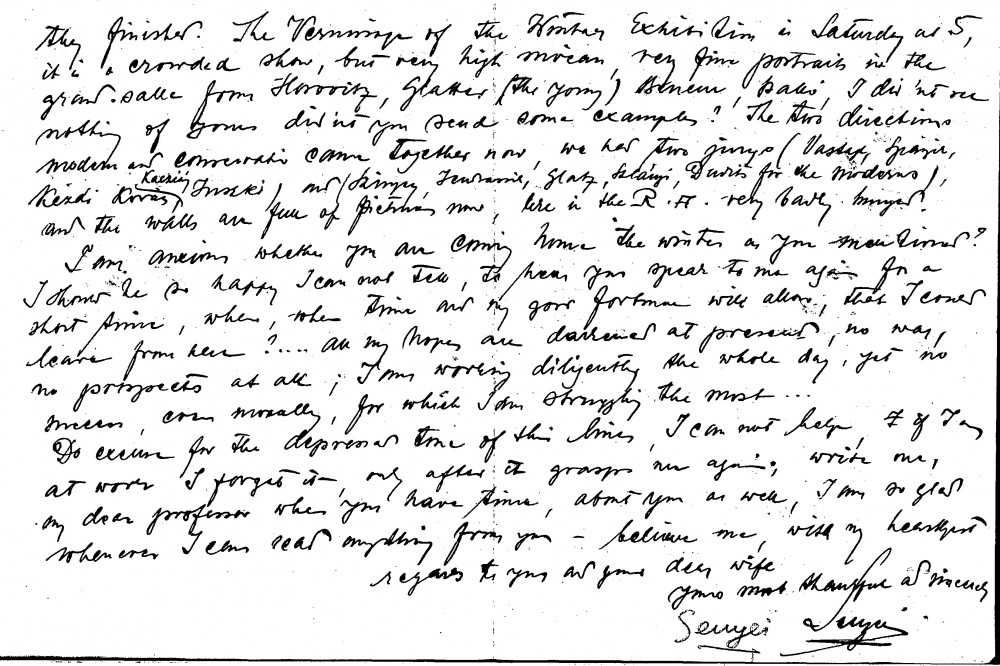 they finished. The Vernissage of the Winter Exhibition is Saturday at 5,
it is a crowded show, but very high niveau, very fine portraits in the
grand-salle from Horovitz, Glatter (the young) Benczur, Balló, I did'nt see
nothing of yours did'nt you send some examples? The two directions
modern and conservativ came together now, we had two jurys (Vastag,
Kézdi Kovács, Kacziány) and (Szinyei, Glatz, Szlányi, for the moderns),
and the walls are full of pictures now, here in the R. H. very badly hanged.
I am anxious whether you are coming home the winter as you mentioned?
I should be so happy I can not tell, to hear you spear to me again for a
short time, when, when time and my good fortune will allow, that I could
leave from here?.... all my hopes are darkened at present, no way,
no prospects at all; I am working diligently the whole day, yet no
success, even morally, for which I am struggling the most...
Do excuse for the depressed tone of this lines, I can not help, if I am
at work I forget it, only after it grasps me again; write me,
my dear professor when you have time, about you as well, I am so glad
whenever I can read anything from you - believe me, with my heartiest
regards to you and your dear wife
yours most thankful ad sincerely
Senyei